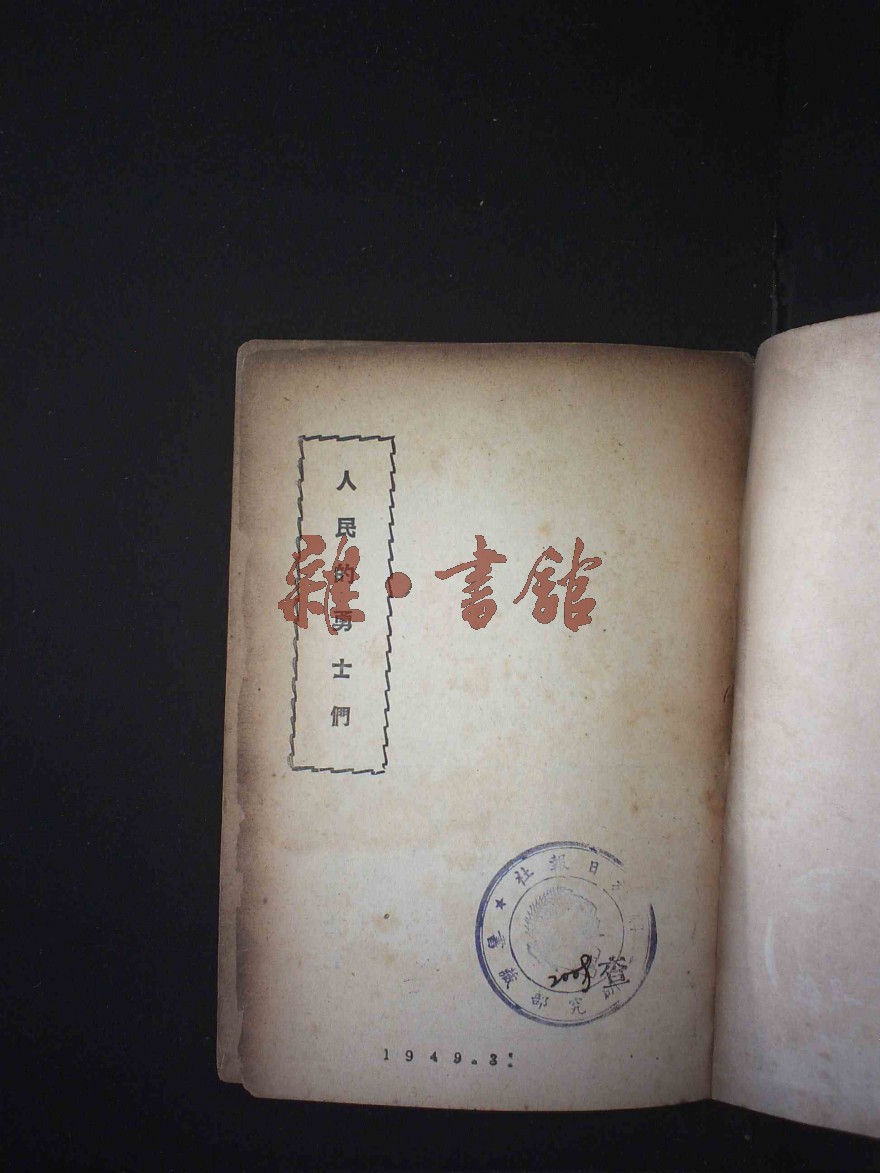 人民的勇士們
雜·書館
社報日
部究
2008
查
1949.3